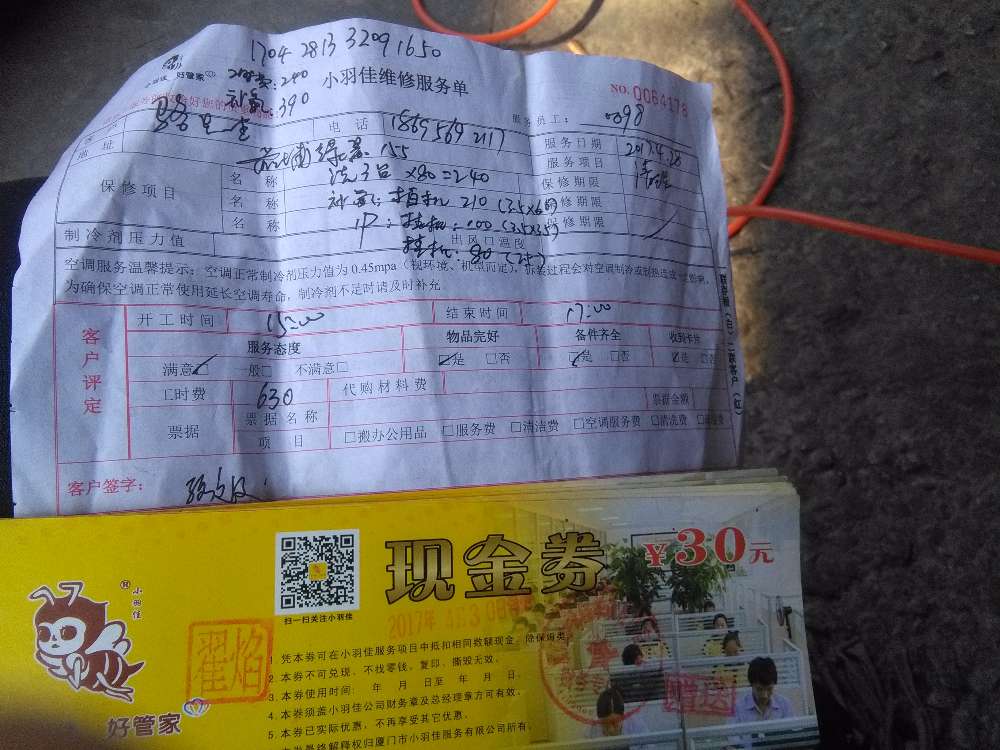 1704 2813 3209 1650
小羽佳 好管家 :240 小羽佳维修服务单
:390 NO.0064178
电话 1869569 2117 服务员工: 098
地址 绿 155 服务日期 2017.4.20
保修项目 名称 洗3台 x80=240 服务项目 清理
名称 210 (3.5x60) 保修期限
名称 挂机:100 (3.5x35) 保修期限
制冷剂压力值 出风口温度 挂机:80 (25)
空调服务温馨提示:空调正常制冷剂压力值为0.45mpa(视环境、机型而定),拆装过程会对空调制冷或制热造成
为确保空调正常使用延长空调寿命,制冷剂不足时请及时补充.
客户评定
开工时间 15:00 结束时间 17:00
服务态度 物品完好 备件齐全 收到卡片
满意☑ 一般□ 不满意□ ☑是 □否 ☑是 □否 ☑是 □否
工时费 630 代购材料费
票据 票据名称 票据金额
项目 □搬办公用品 □服务费 □清洁费 □空调服务费 □清洗费
客户签字:
小羽佳
好管家
扫一扫关注小羽佳
现金券 ¥30元
2017年4月30
翟焰
1. 凭本券可在小羽佳服务项目中抵扣相同数额现金,除保姆类
2. 本券不可兑现、不找零钱、复印、撕毁无效。
3. 本券使用时间: 年 月 日至 年 月 日。
4. 本券须盖小羽佳公司财务章及总经理章方可有效。
5. 本券已实际优惠,不再享受其它优惠。
本券最终解释权归厦门市小羽佳服务有限公司所有。
赠送